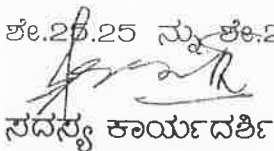 ಶೇ.25.25 ನ್ನು ಶೇ.2
ಸದಸ್ಯ ಕಾರ್ಯದರ್ಶಿ